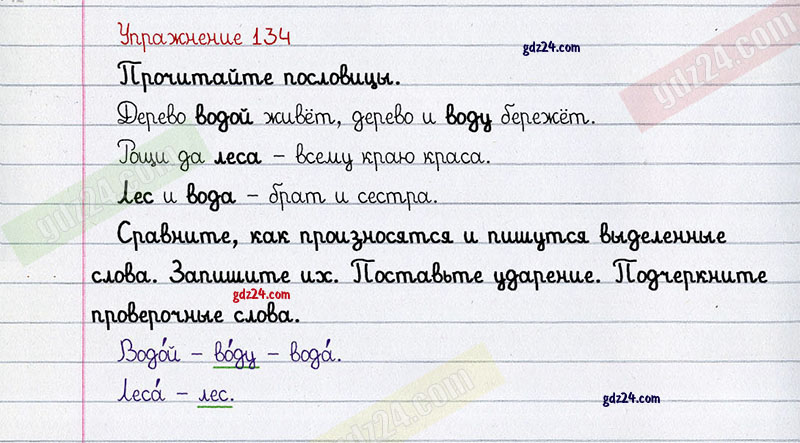 Упражнение 134
gdz24.com
gdz24.com
Прочитайте пословицы.
Дерево водой живёт, дерево и воду бережёт.
Рощи да леса – всему краю краса.
gdz24.com
Лес и вода – брат и сестра.
Сравните, как произносятся и пишутся выделенные
слова. Запишите их. Поставьте ударение. Подчеркните
gdz24.com
проверочные слова.
Водо́й – во́ду – вода́.
Леса́ – лес.
gdz24.com
gdz24.com